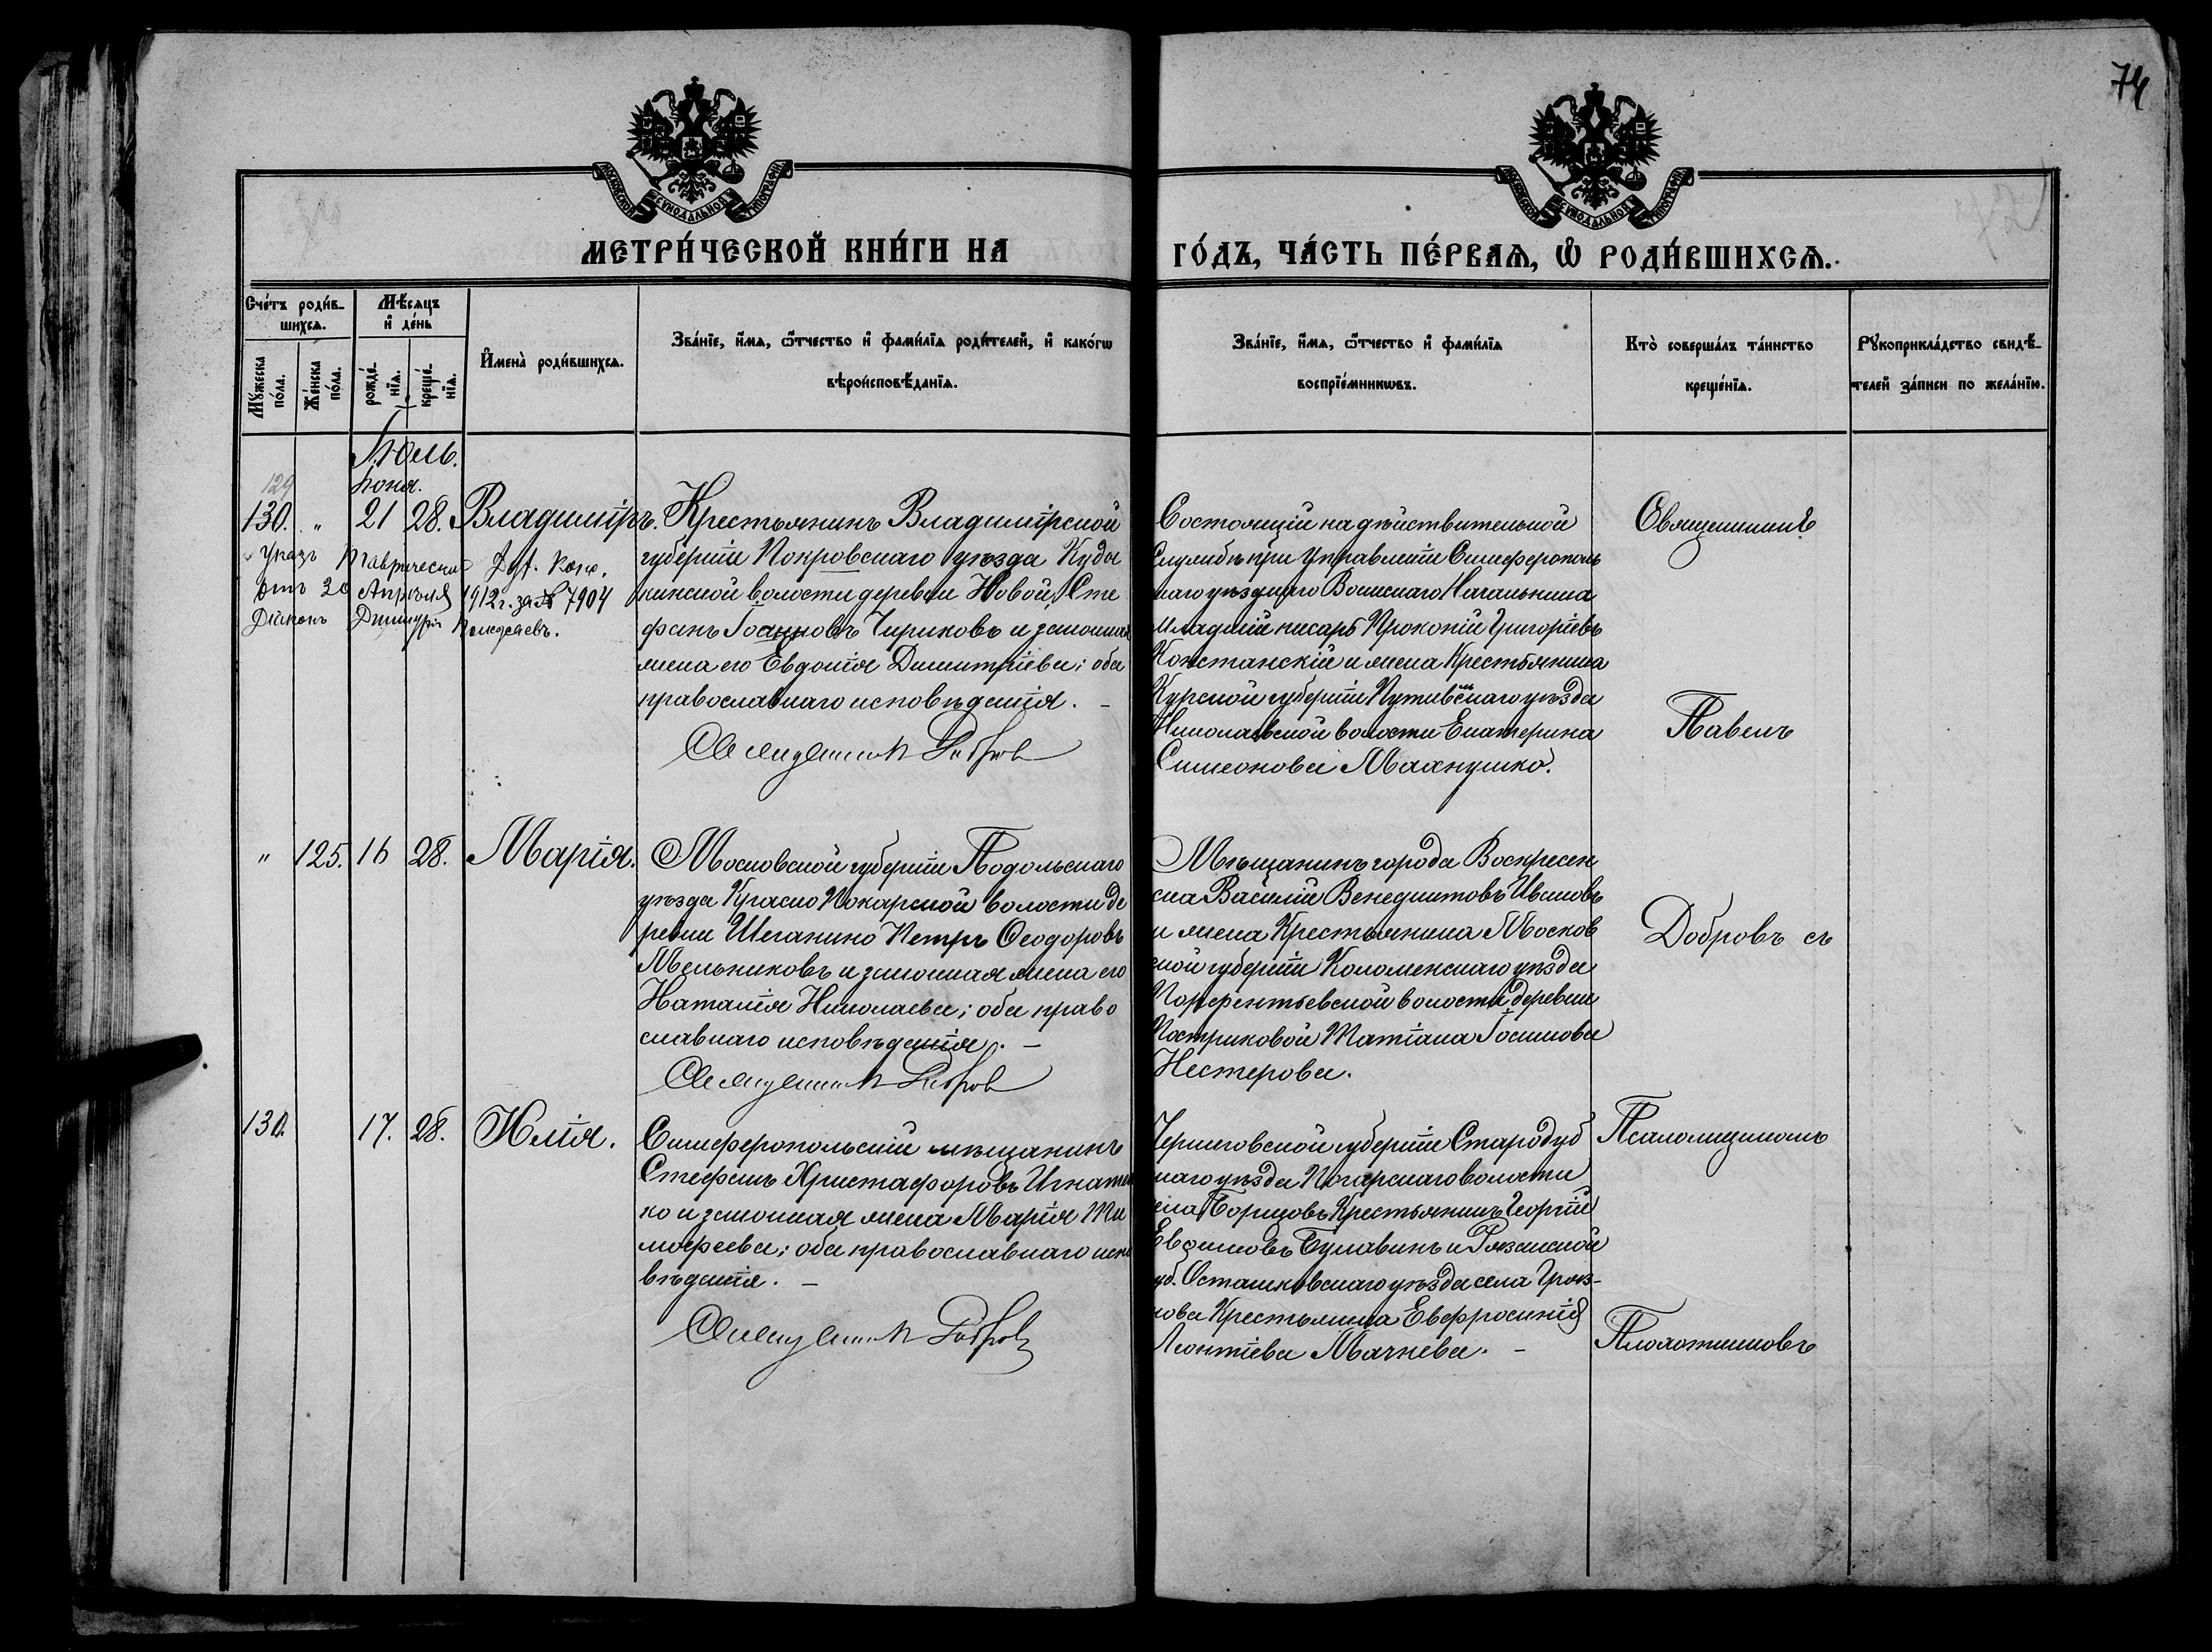 74
МОСКОВСКОЙ СѴНОДАЛЬНОЙ ТИПОГРАФІИ
МОСКОВСКОЙ СѴНОДАЛЬНОЙ ТИПОГРАФІИ
МЕТРИ́ЧЕСКОЙ КНИ́ГИ НА
ГО́ДЪ, ЧА́СТЬ ПЕ́РВАѦ, Ѡ҆ РОДИ́ВШИХСѦ.
Сче́тъ роди́в-
шихсѧ.
Мѣ́сѧцъ
и҆ де́нь
Мꙋ́жеска
по́ла.
Же́нска
по́ла.
рожде́-
нїѧ.
креще́-
нїѧ.
И҆мена̀ роди́вшихсѧ.
Зва́нїе, и҆́мѧ, ѻ҆́тчество и҆ фами́лїѧ роди́телей, и҆ како́гѡ
вѣроисповѣ́данїѧ.
Зва́нїе, и҆́мѧ, ѻ҆́тчество и҆ фами́лїѧ
воспрїе́мникѡвъ.
Кто̀ соверша́лъ та́инство
креще́нїѧ.
Рꙋкоприкла́дство свидѣ́-
телей за́писи по жела́нїю.
Іюль.
129
Іюня.
130. " 21 28. Владиміръ.
Указъ Таврическ. Дух. Конс.
отъ 30 Апрѣля 1912 г. за № 7904
Діаконъ Димитрій
Крестьянинъ Владимірской
губерніи Покровскаго уѣзда Куды
кинской волости деревни Новой, Сте
фанъ Іоанновъ Чириковъ и законная
жена его Евдокія Димитріева; оба
православнаго исповѣданія. –
Священник Добров
Состоящій на дѣйствительной
службѣ при Управленіи Симферополь
скаго уѣзднаго Воинскаго Начальника
младшій писарь Прокопій Григоріевъ
Константскій и жена Крестьянина
Курской губерніи Путивльскаго уѣзда
Николаевской волости Екатерина
Симеонова
Священникъ
Павелъ
Добровъ съ
Псаломщикомъ
Плохотниковъ
" 125. 16 28. Марія.
Московской губерніи Подольскаго
уѣзда Красно Пахарской волости де
ревни Шаганино Петръ Ѳеодоровъ
Мельниковъ и законная жена его
Наталія Николаева; оба право
славнаго исповѣданія. –
Священник Добров
Мѣщанинъ города Воскресен
ска Василій Венедиктовъ Ивановъ
и жена Крестьянина Москов
ской губерніи Коломенскаго уѣзда
Парфентьевской волости деревни
Постриковой Матіана Іоаннова
Нестерова.
130. 17. 28. Юлія.
Симферопольскій мѣщанинъ
Стефанъ Христафоровъ Игнатен
ко и законная жена Марія Ти
мофеева; оба православнаго испо
вѣданія. –
Священник Добров
Черниговской губерніи Стародуб
скаго уѣзда Погарскаго волости
села Борщовъ Крестьянинъ Георгій
Евфимовъ Булавинъ и Рязанской
губ. Осташковскаго уѣзда села Гряз-
нова Крестьянка Евфросинія
Леонтіева Мачнева. –